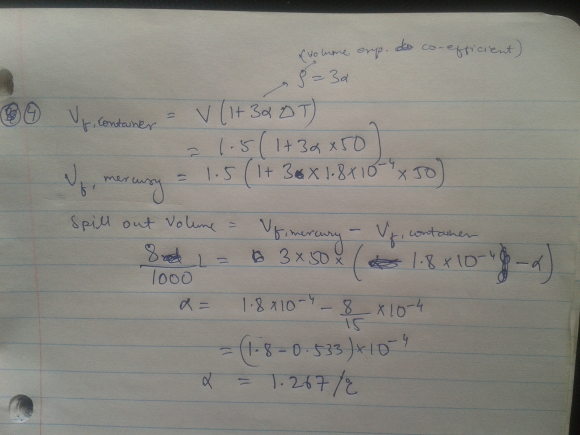 (volume exp. co-efficient)
ρ = 3α
4 V f, container = V (1+3α ΔT)
= 1.5 (1+3α×50)
V f, mercury = 1.5 (1+ 3×1.8×10⁻⁴×50)
Spill out Volume = V f, mercury - V f, container
8/1000 L = 3×50×( 1.8×10⁻⁴ -α)
α = 1.8×10⁻⁴ - 8/15 ×10⁻⁴
= (1.8-0.533)×10⁻⁴
α = 1.267/